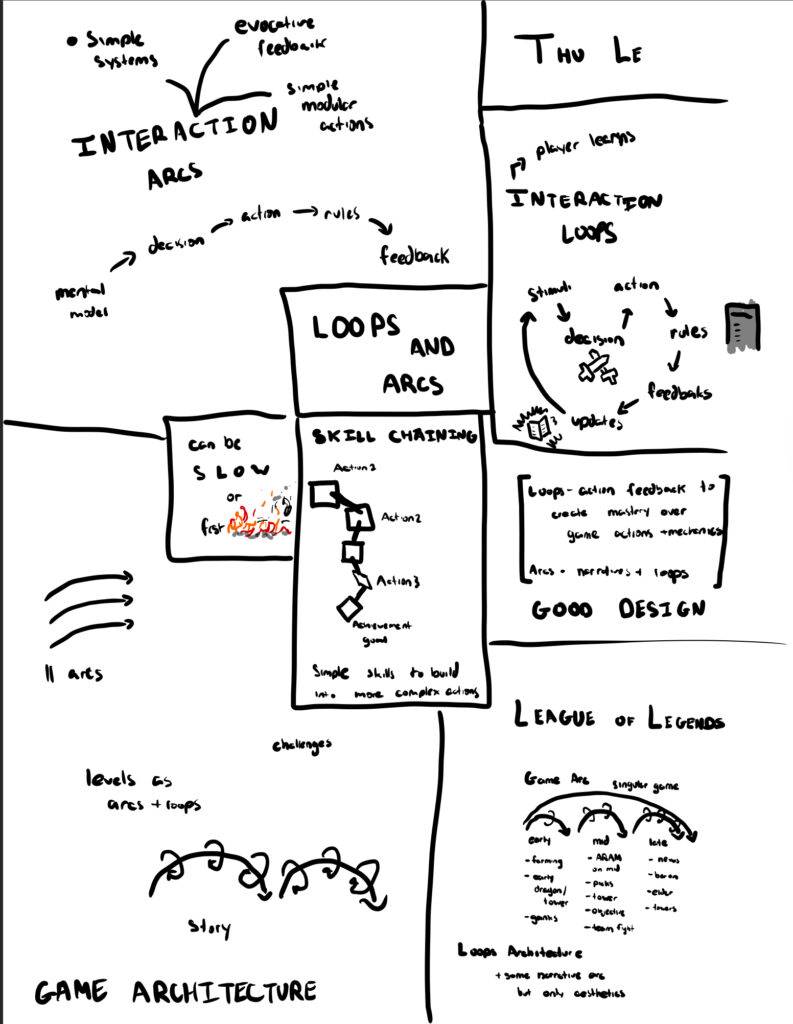 • Simple
systems
evocative
feedback
simple
modular
actions
INTERACTION
ARCS
mental
model
decision
action
rules
feedback
THU LE
player learns
INTERACTION
LOOPS
stimuli
action
decision
rules
feedbaks
updates
LOOPS
AND
ARCS
can be
SLOW
or
fast
SKILL CHAINING
Action 1
Action 2
Action 3
Achievement
goal
Simple skills to build
into more complex actions
Loops - action feedback to
create mastery over
game actions + mechanics
Arcs - narratives + loops
GOOD DESIGN
|| arcs
challenges
levels as
arcs + loops
story
GAME ARCHITECTURE
LEAGUE OF LEGENDS
Game Arc
singular game
early
- farming
- early
dragon/
tower
- ganks
mid
- ARAM
on mid
- picks
- tower
- objective
- team fight
late
- nexus
- baron
- elder
- towers
Loops Architecture
+ some narrative arc
but only aesthetics